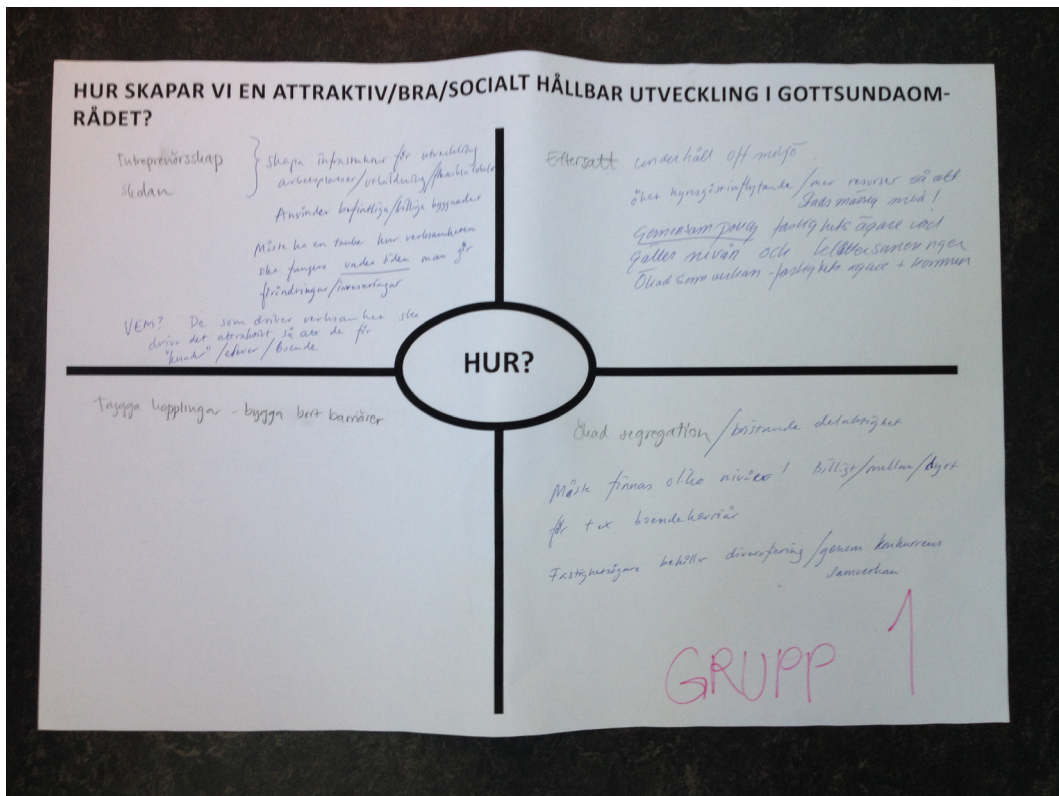 HUR SKAPAR VI EN ATTRAKTIV/BRA/SOCIALT HÅLLBAR UTVECKLING I GOTTSUNDAOM-
RÅDET?
Entreprenörsskap
skolan
skapa infrastruktur för utveckling
arbetsplatser/utbildning/flexibla lokaler
Använder befintliga/billiga byggnader
Måste ha en tanke hur verksamheten
ska fungera under tiden man gör
förändringar/investeringar
VEM? De som driver verksamheten ska
driva det attraktivt så att de får
"kunder"/elever/boende
Eftersatt underhåll off miljö
öka hyresgästinflytande/mer resurser så att
många
Gemensam policy fastighets ägare vad
gäller nivån och
Ökad sam verkan - fastighets ägare + kommun
HUR?
Trygga kopplingar - bygga bort barriärer
Ökad segregation/bristande delaktighet
Måste finnas olika nivåer! billigt/mellan/dyrt
för t ex boendekarriär
Fastighetsägare behåller diversifiering/genom konkurrens
samverkan
GRUPP 1